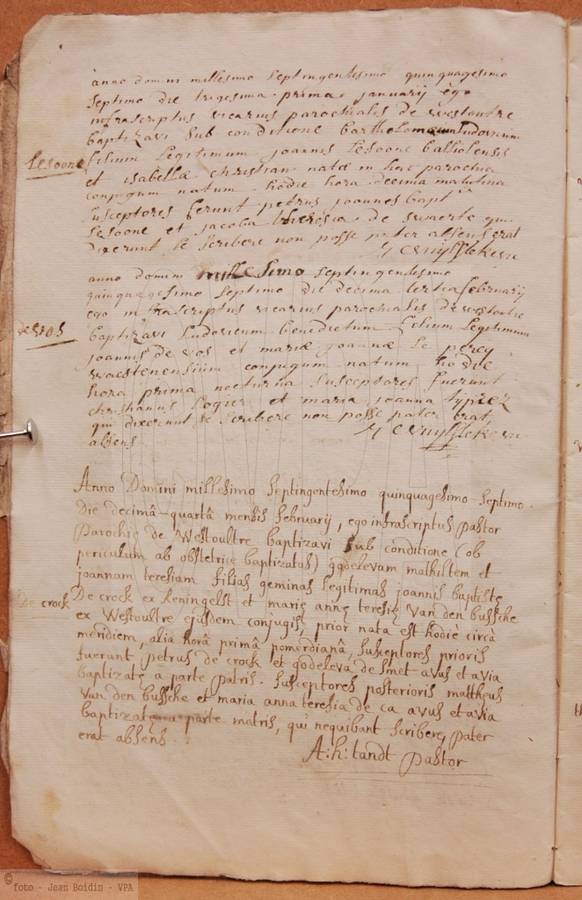 anno domini millesimo septingentesimo quinquagesimo
septimo die trigesima prima januarij ego
infrascriptus vicarius parochialis de westoutre
baptizavi sub conditione bartholomeum ludovicum
Lesoone
filium legitimum joannis Lesoone balliolensis
et isabellæ christian natæ in hac parochia
conjugum natum hodie hora decima matutina
susceptores fuerunt petrus joannes bapt
Lesoone et jacoba theresia de swaerte qui
dixerunt se scribere non posse pater absens erat
anno domini millesimo septingentesimo
quinquagesimo septimo die decima tertia februarij
ego infrascriptus vicarius parochialis de westoutre
de vos
baptizavi Ludovicum benedictum filium Legitimum
joannis de vos et mariæ joannæ Le percq
waestenensium conjugum natum hodie
hora prima nocturna susceptores fuerunt
christianus Logier et maria joanna
qui dixerunt se scribere non posse pater erat
absens
Anno Domini millesimo septingentesimo quinquagesimo-septimo
Die decimâ-quartâ mensis februarij, ego infrascriptus pastor
Parochiæ de Westoultre baptizavi sub conditione (ob
periculum ab obstetrice baptizatus) godelevam mathildem et
joannam teresiam filias geminas legitimas joannis baptiste
De crock
De crock ex Reningelst et mariæ annæ teresiæ Van den bussche
ex Westoultre ejusdem conjugis, prior nata est hodiè circà
meridiem, alia horâ primâ pomerdianâ, susceptores prioris
fuerunt petrus de crock et godeleva de smet avus et avia
baptizatæ a parte patris. susceptores posterioris mattheus
Van den bussche et maria anna teresia de ca avus et avia
baptizatæ parte matris, qui nequibant scribere, pater
erat absens
A:h: tandt pastor
© foto - Jean Boidin - VPA